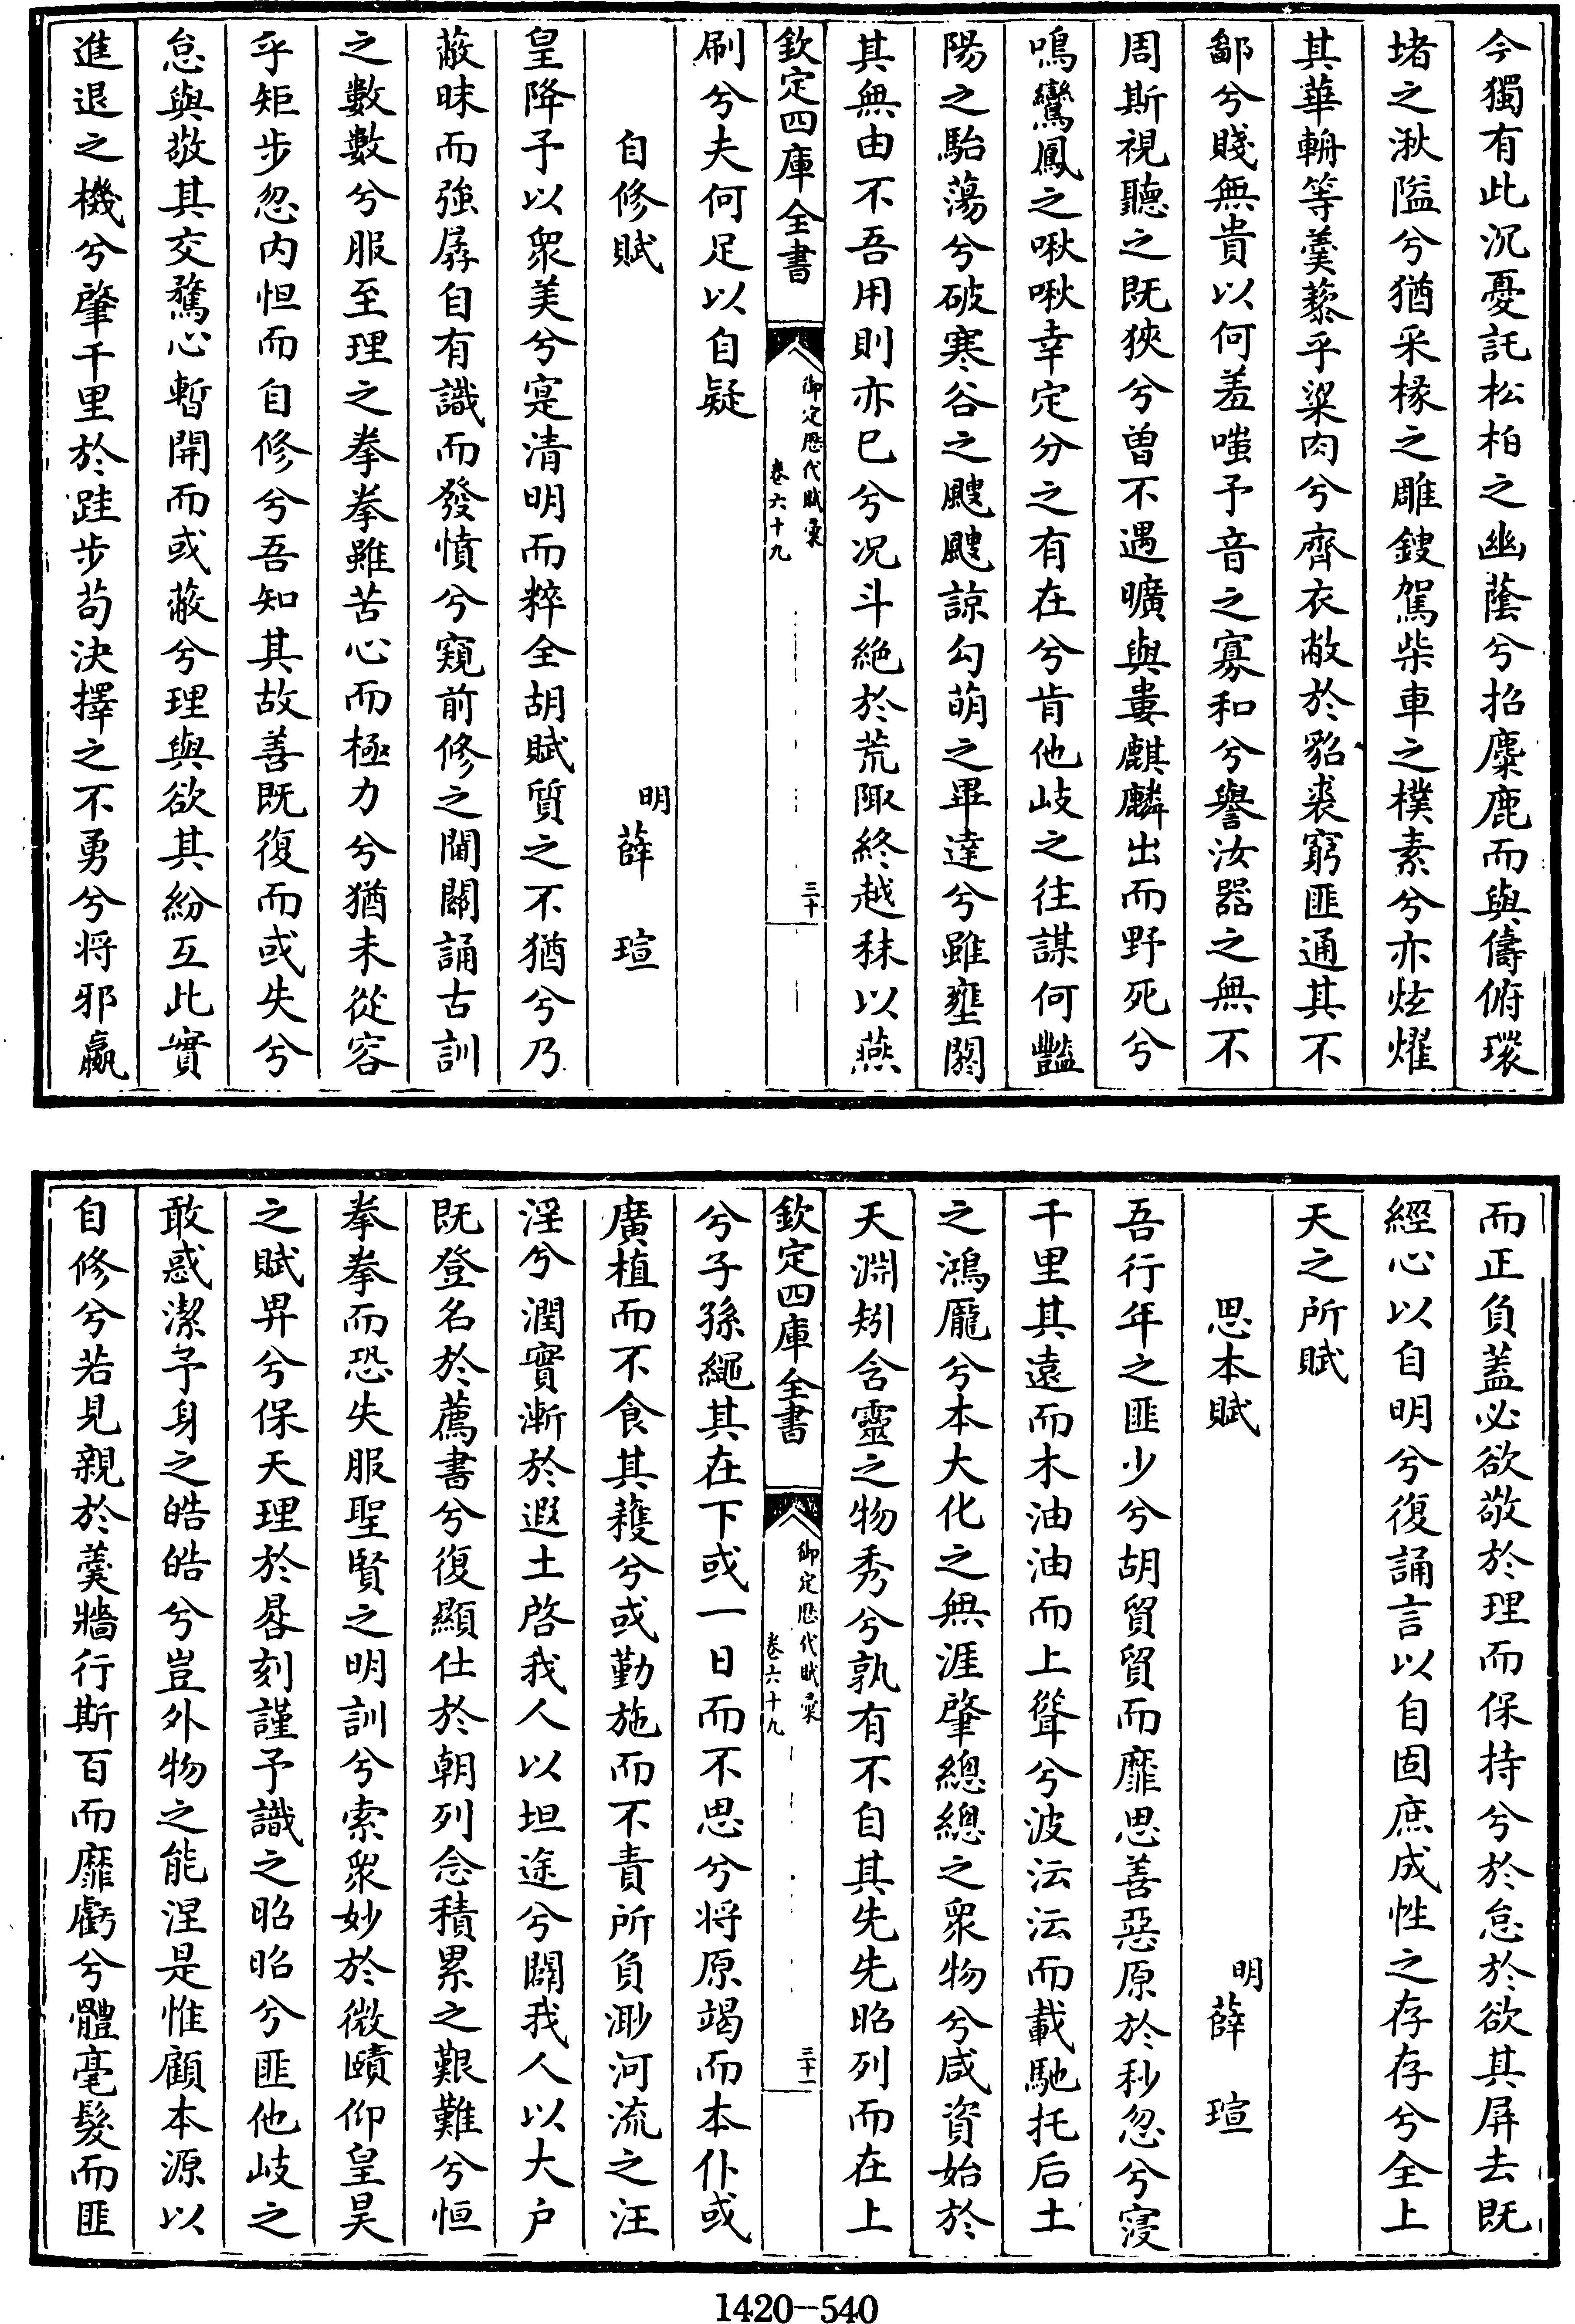 今獨有此沉憂託松柏之幽蔭兮招麋鹿而與儔俯環
堵之湫隘兮猶采椽之雕鎪駕柴車之樸素兮亦炫燿
其華輈等羹藜乎粱肉兮齊衣敝於貂裘窮匪通其不
鄙兮賤無貴以何羞嗤予音之寡和兮譽汝器之無不
周斯視聽之既狹兮曽不遇曠與婁麒麟出而野死兮
鳴鸞鳳之啾啾幸定分之有在兮肯他岐之往謀何豔
陽之駘蕩兮破寒谷之颼颼諒勾萌之畢達兮雖壅閼
其無由不吾用則亦已兮况斗絶於荒陬終越秣以燕
欽定四庫全書
御定歴代賦彚
卷六十九
三十
刷兮夫何足以自疑
自修賦
明薛瑄
皇降予以衆美兮寔清明而粹全胡賦質之不猶兮乃
蔽昧而強孱自有識而發憤兮窺前修之閫闢誦古訓
之數數兮服至理之拳拳雖苦心而極力兮猶未從容
乎矩步忽内怛而自修兮吾知其故善既復而或失兮
怠與敬其交騖心暫開而或蔽兮理與欲其紛互此實
進退之機兮肇千里於跬步苟決擇之不勇兮将邪贏
而正負蓋必欲敬於理而保持兮於怠於欲其屏去既
經心以自明兮復誦言以自固庶成性之存存兮全上
天之所賦
思本賦
明薛瑄
吾行年之匪少兮胡貿貿而靡思善惡原於秒忽兮寖
千里其遠而木油油而上聳兮波沄沄而載馳托后土
之鴻厖兮本大化之無涯肇總總之衆物兮咸資始於
天淵矧含靈之物秀兮孰有不自其先先昭列而在上
欽定四庫全書
御定歴代賦彚
卷六十九
三十一
兮子孫繩其在下或一日而不思兮将原竭而本仆或
廣植而不食其穫兮或勤施而不責所負渺河流之汪
淫兮潤實漸於遐土啓我人以坦途兮闢我人以大户
既登名於薦書兮復顯仕於朝列念積累之艱難兮恒
拳拳而恐失服聖賢之明訓兮索衆妙於微賾仰皇昊
之賦畀兮保天理於晷刻謹予識之昭昭兮匪他岐之
敢惑潔予身之皓皓兮豈外物之能涅是惟顧本源以
自修兮若見親於羹牆行斯百而靡虧兮體毫髮而匪
1420-540